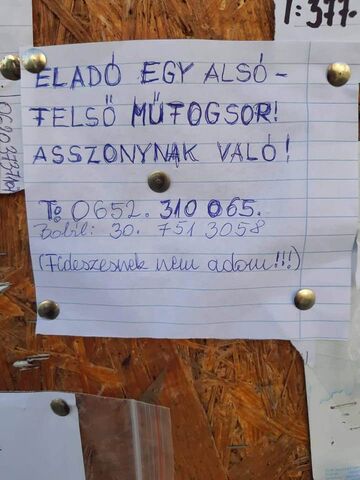 1:377-
ELADÓ EGY ALSÓ-
FELSŐ MŰFOGSOR!
ASSZONYNAK VALÓ!
T: 0652. 310 065.
Bobil: 30. 751 3058
(Fideszesnek nem adom!!!)